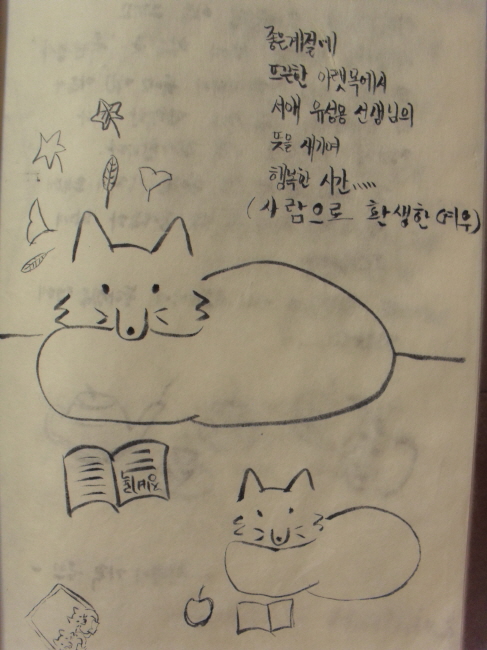 좋은계절에
뜨끈한 아랫목에서
서애 유성룡 선생님의
뜻을 새기며
행복한 시간.....
(사람으로 환생한 여우)